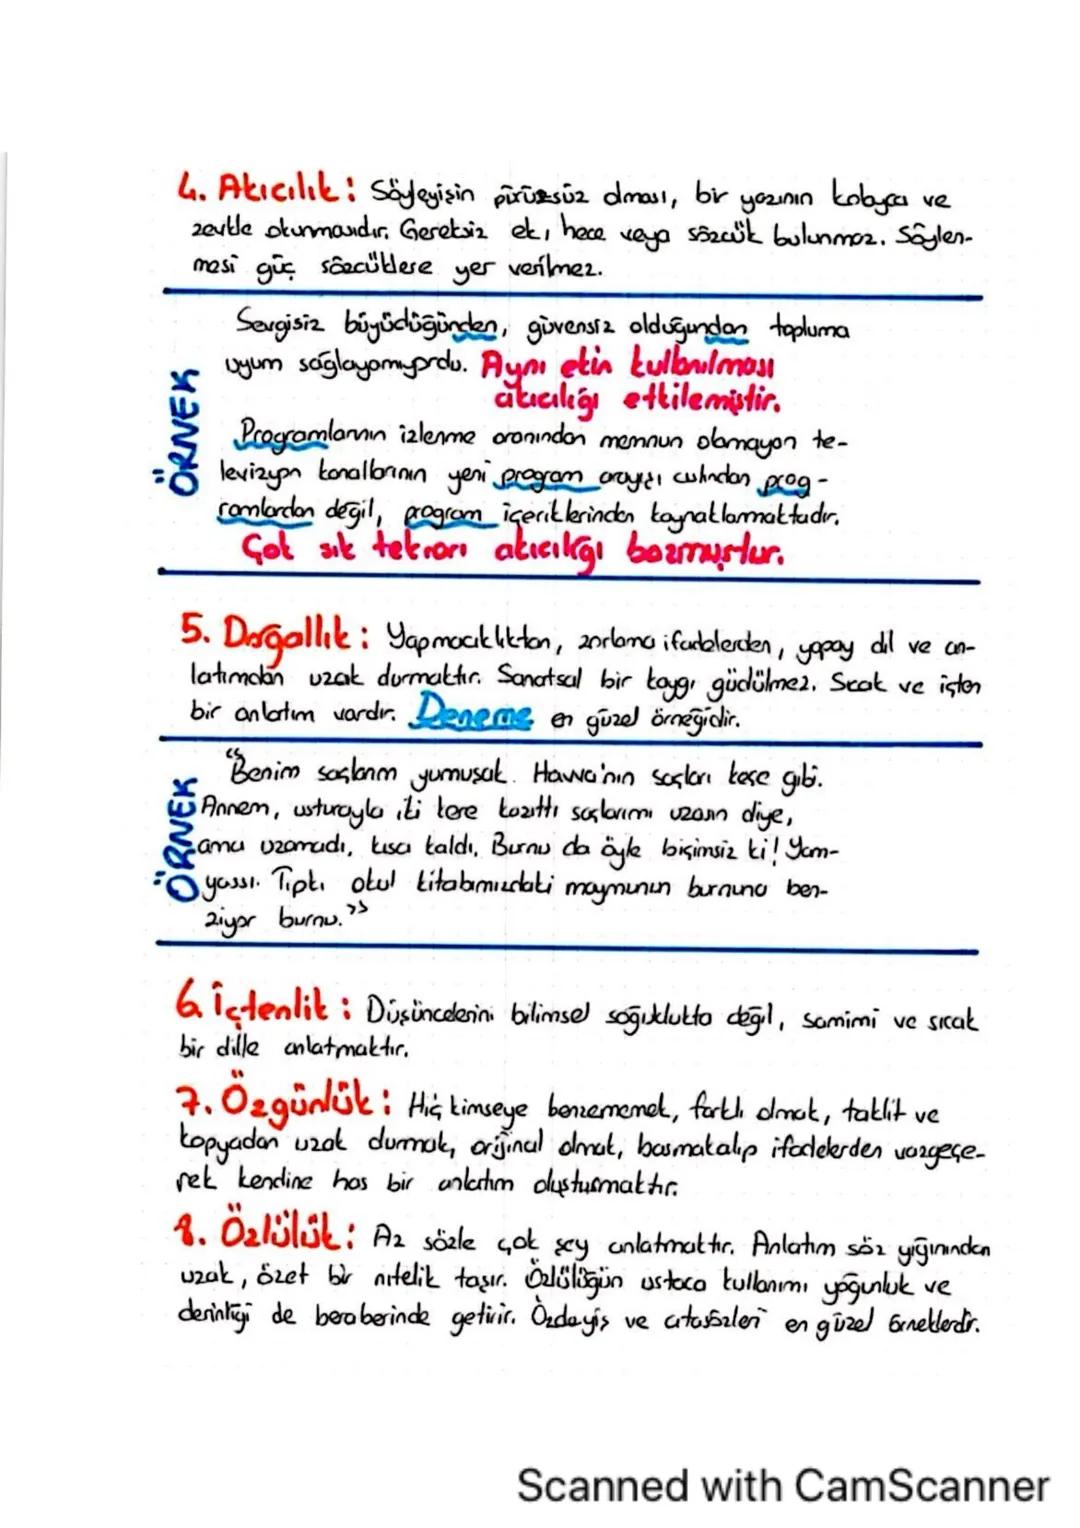 4. Akıcılık: Söyleyişin pürüzsüz olması, bir yazının kolayca ve
zevkle okunmasıdır. Gereksiz ek, hece veya sözcük bulunmaz. Söylen-
mesi güç sözcüklere yer verilmez.
ÖRNEK
Sevgisiz büyüdüğünden, güvensiz olduğundan topluma
uyum sağlayamıyordu. Aynı ekin kullanılması
akıcılığı etkilemiştir.
Programlarının izlenme oranından memnun olamayan te-
levizyon kanallarının yeni program arayışı cılından prog-
ramlardan değil, program içeriklerinden kaynaklanmaktadır.
Çok sık tekrarı akıcılığı bozmuştur.
5. Doğallık: Yapmacıklıktan, zorlama ifadelerden, yapay dil ve an-
latımdan uzak durmaktır. Sanatsal bir kaygı güdülmez. Sıcak ve içten
bir anlatım vardır. Deneme en güzel örneğidir.
ÖRNEK
"Benim saçlarım yumuşak. Havva'nın saçları keçe gibi.
Annem, usturayla iki kere kazıttı saçlarımı uzasın diye,
ama uzamadı, kısa kaldı. Burnu da öyle biçimsiz ki! Yam-
yassı. Tıpkı okul kitabımızdaki maymunun burnuna ben-
ziyor burnu."
6. İçtenlik: Düşüncelerini bilimsel soğuklukta değil, samimi ve sıcak
bir dille anlatmaktır.
7. Özgünlük: Hiç kimseye benzememek, farklı olmak, taklit ve
kopyadan uzak durmak, orijinal olmak, basmakalıp ifadelerden vazgeçe-
rek kendine has bir anlatım oluşturmaktır.
8. Özlülük: Az sözle çok şey anlatmaktır. Anlatım söz yığınından
uzak, özet bir nitelik taşır. Özlülüğün ustaca kullanımı yoğunluk ve
derinliği de beraberinde getirir. Özdeyiş ve atasözleri en güzel örneklerdir.
Scanned with CamScanner